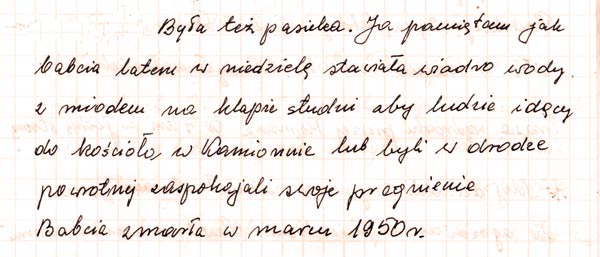 Była też pasieka. Ja pamiętam jak
babcia latem w niedzielę stawiała wiadro wody
z miodem na klapie studni aby ludzie idący
do kościoła w Kamionnie lub byli w drodze
powrotnej zaspokajali swoje pragnienie
Babcia zmarła w marcu 1950r.